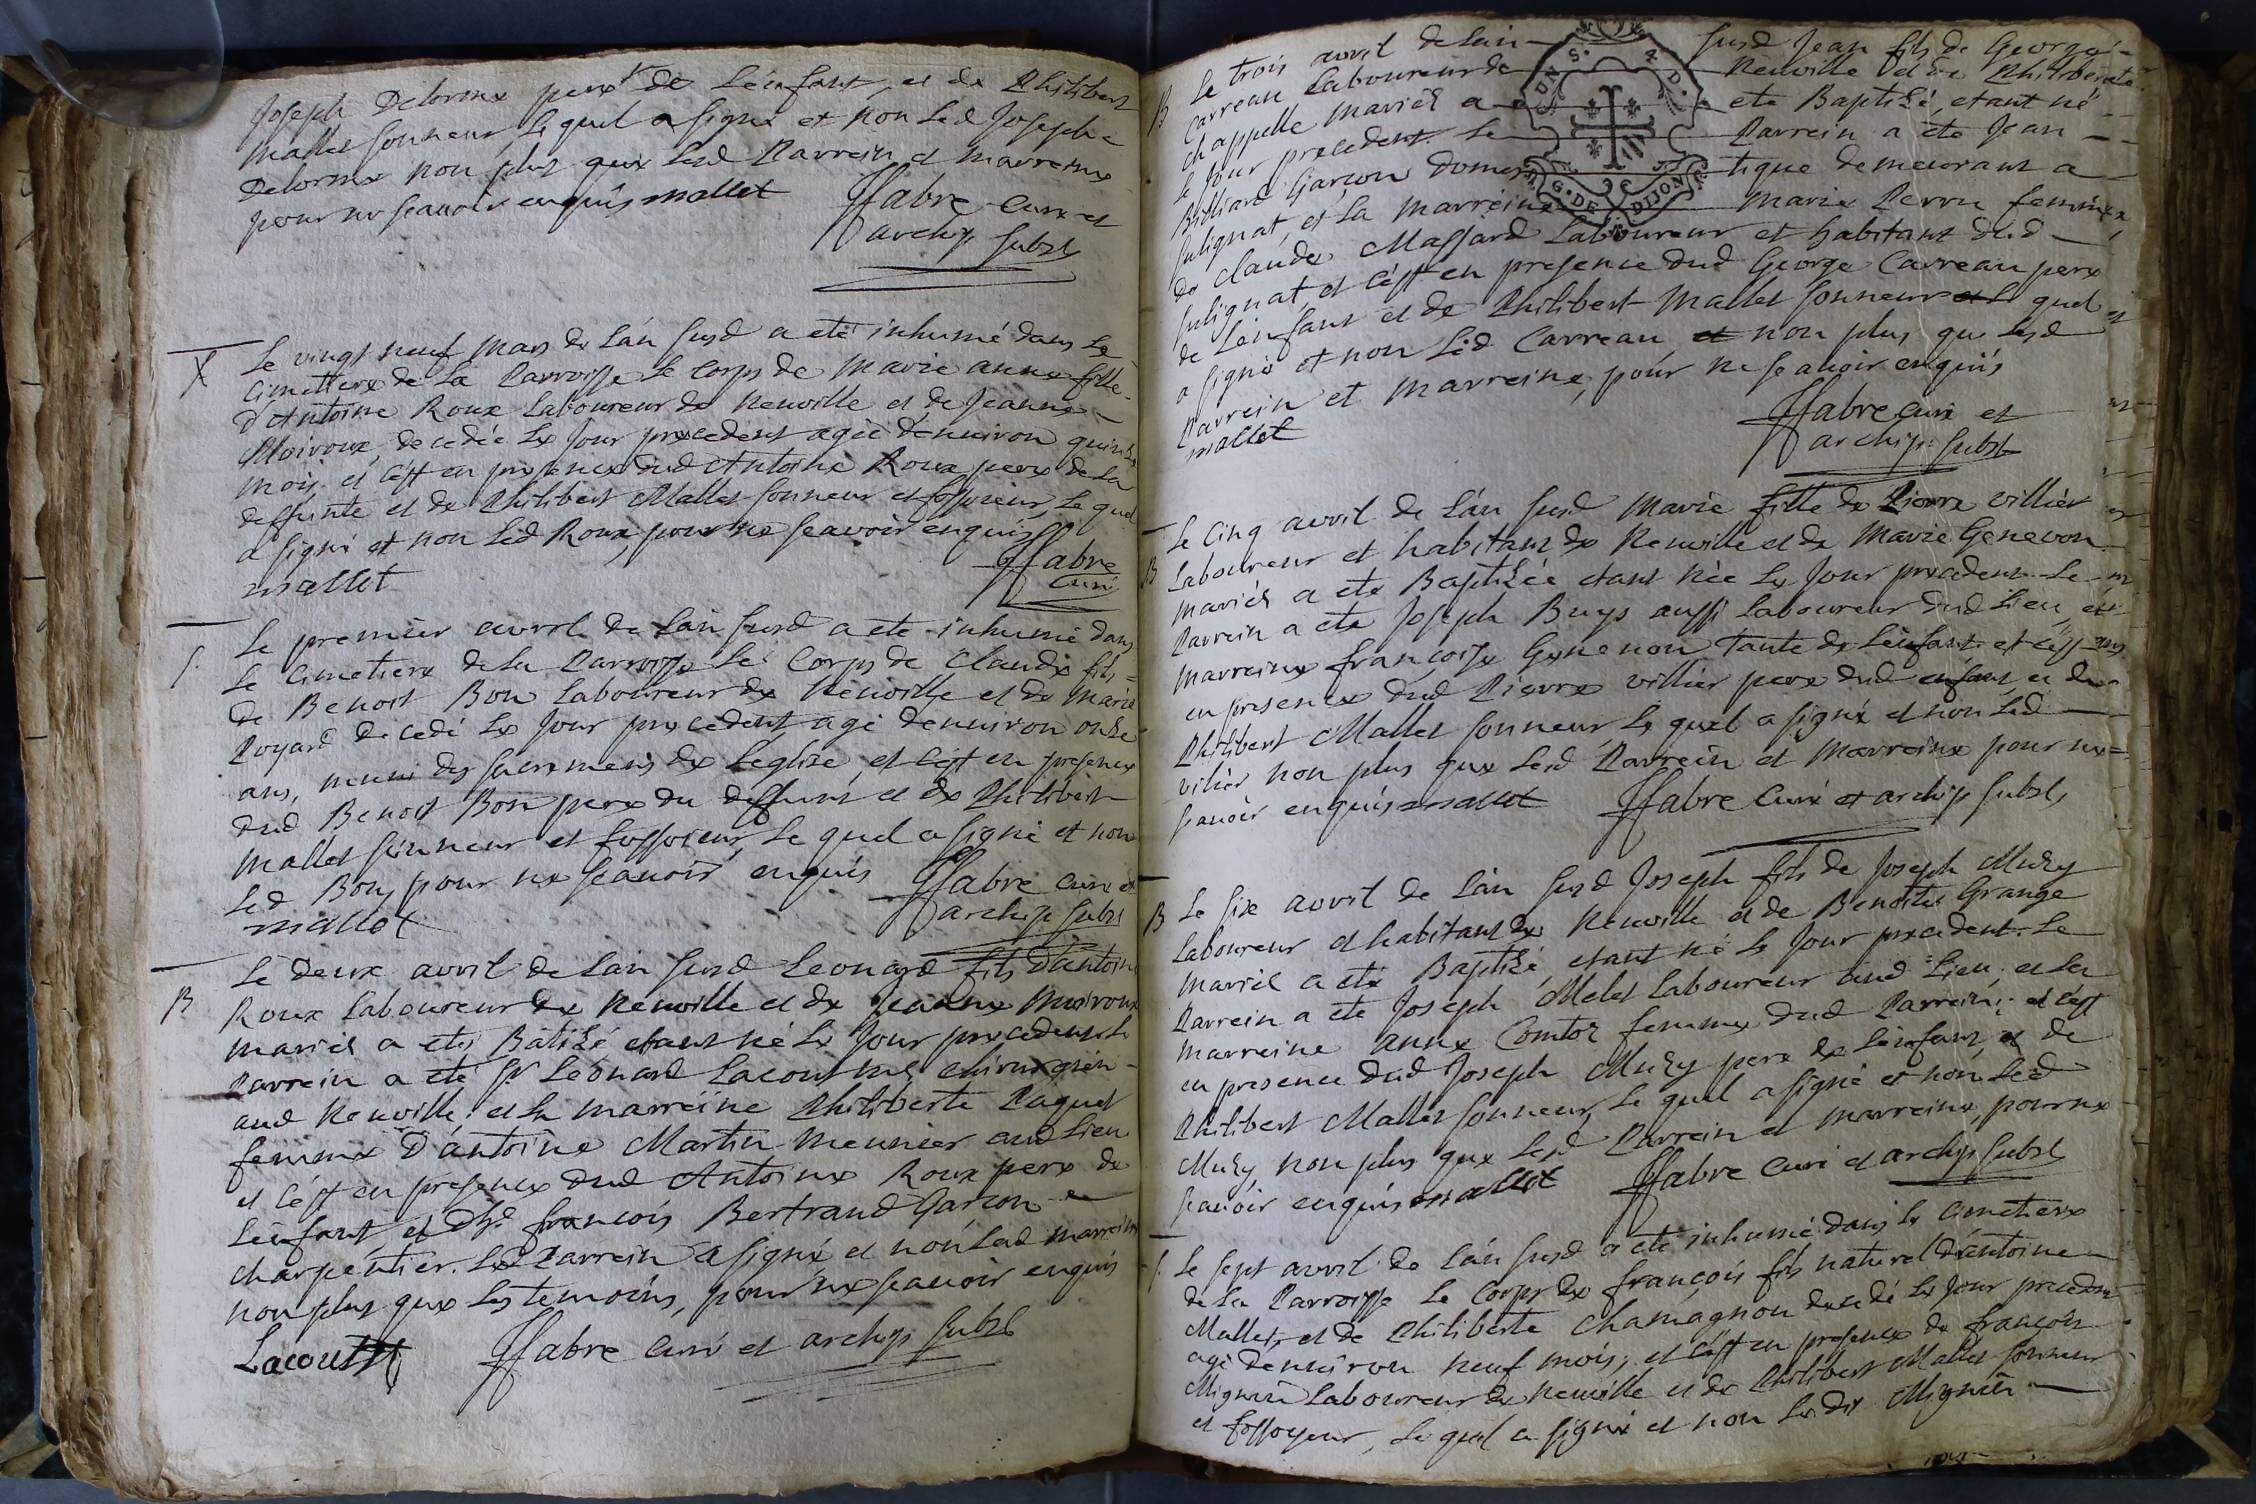 Joseph Delorme pere de l'enfant, et de Philibert
Mallet sonneur, le quel a signé et non led Joseph
Delorme non plus que lesd Parrein et marreine
pour ne scavoir enquis mallet ffabre curé et
archip subst
Le vingt neuf mars de l'an susd a eté inhumé dans le
cimettiere de la Parroisse le corps de Marie anne fille
d'Antoine Roux laboureur de Neuville et de Jeanne
Moiroux, decedée le jour precedent agée d'environ quinze
mois. et c'est en presence dud Antoine Roux pere de la
deffunte et de Philibert Mallet sonneur et fossoieur, le quel
a signé et non led Roux, pour ne scavoir enquis
mallet ffabre
curé
S. Le premier avril de l'an susd a eté inhumé dans
le cimetiere de la Parroisse le corps de Claude fils
de Benoit Bon laboureur de Neuville et de Marie
Poyard decedé le jour precedent agé d'environ onze
ans, muni des sacremens de l'eglise et c'est en presence
dud Benoit Bon pere du deffunt et de Philibert
Mallet sonneur et fossoieur, le quel a signé et non
led Bon, pour ne scavoir enquis ffabre curé et
mallet archip subst
B Le deux avril de l'an susd Leonard fils d'antoine
Roux laboureur de Neuville et de Jeanne Moiroux
mariés a eté Batizé etant né le jour precedent. le
Parrein a eté Sr Léonard Lacoutt chirurgien
aud Neuville. et la marreine Philiberte Paquet
femme d'antoine Martin meunier aud lieu
et c'est en presence dud Antoine Roux pere de
l'enfant et d'h. francois Bertrand Garcon
charpentier. led Parrein a signé et non lad marreine
non plus que les temoins, pour ne scavoir enquis
Lacoutt ffabre curé et archip subst
B Le trois avril de l'an susd Jean fils de George
Carreau laboureur de Neuville et de Philiberte
Chappelle mariés a eté Baptisé, etant né
le jour precedent. le Parrein a eté Jean
Billiard Garcon domestique demeurant a
Sulignat, et la marreine Marie Perru femme
de Claude Massard laboureur et habitant dud
Sulignat, et c'est en presence dud George Carreau pere
de l'enfant et de Philibert Mallet sonneur le quel
a signé et non led Carreau non plus que lesd
Parrein et marreine, pour ne scavoir enquis
mallet ffabre curé et
archip. subst
B Le cinq avril de l'an susd Marie fille de Pierre villier
laboureur et habitant de Neuville et de Marie Genevon
mariés a eté Baptizée etant née le jour precedent. le
Parrein a eté Joseph Buys aussi laboureur dud lieu, et
marreine françoise Genenon tante de l'enfant. et c'est
en presence dud Pierre villier pere dud enfant et de
Philibert Mallet sonneur le quel a signé et non led
vilier, non plus que lesd Parrein et marreine pour ne
scavoir enquis mallet ffabre curé et archip subst
B Le six avril de l'an susd Joseph fils de Joseph Muzy
laboureur et habitant de Neuville et de Benoite Grange
mariés a eté Baptizé, etant né le jour precedent. le
Parrein a eté Joseph Melet laboureur aud lieu. et la
marreine anne Comtoz femme dud Parrein; et c'est
en presence dud Joseph Muzy pere de l'enfant, et de
Philibert Mallet sonneur, le quel a signé et non led
Muzy non plus que lesd Parrein et marreine, pour ne
scavoir enquis mallet ffabre curé et archip subst
S. Le sept avril de l'an susd a eté inhumé dans le cimetiere
de la Parroisse le corps de françois fils naturel d'antoine
Mallet, et de Philiberte Chamagnon decedé le jour precedent
agé d'environ neuf mois, et c'est en presence de françois
Mignin laboureur de Neuville et de Philibert Mallet sonneur
et fossoyeur, le quel a signé et non ledit Mignin